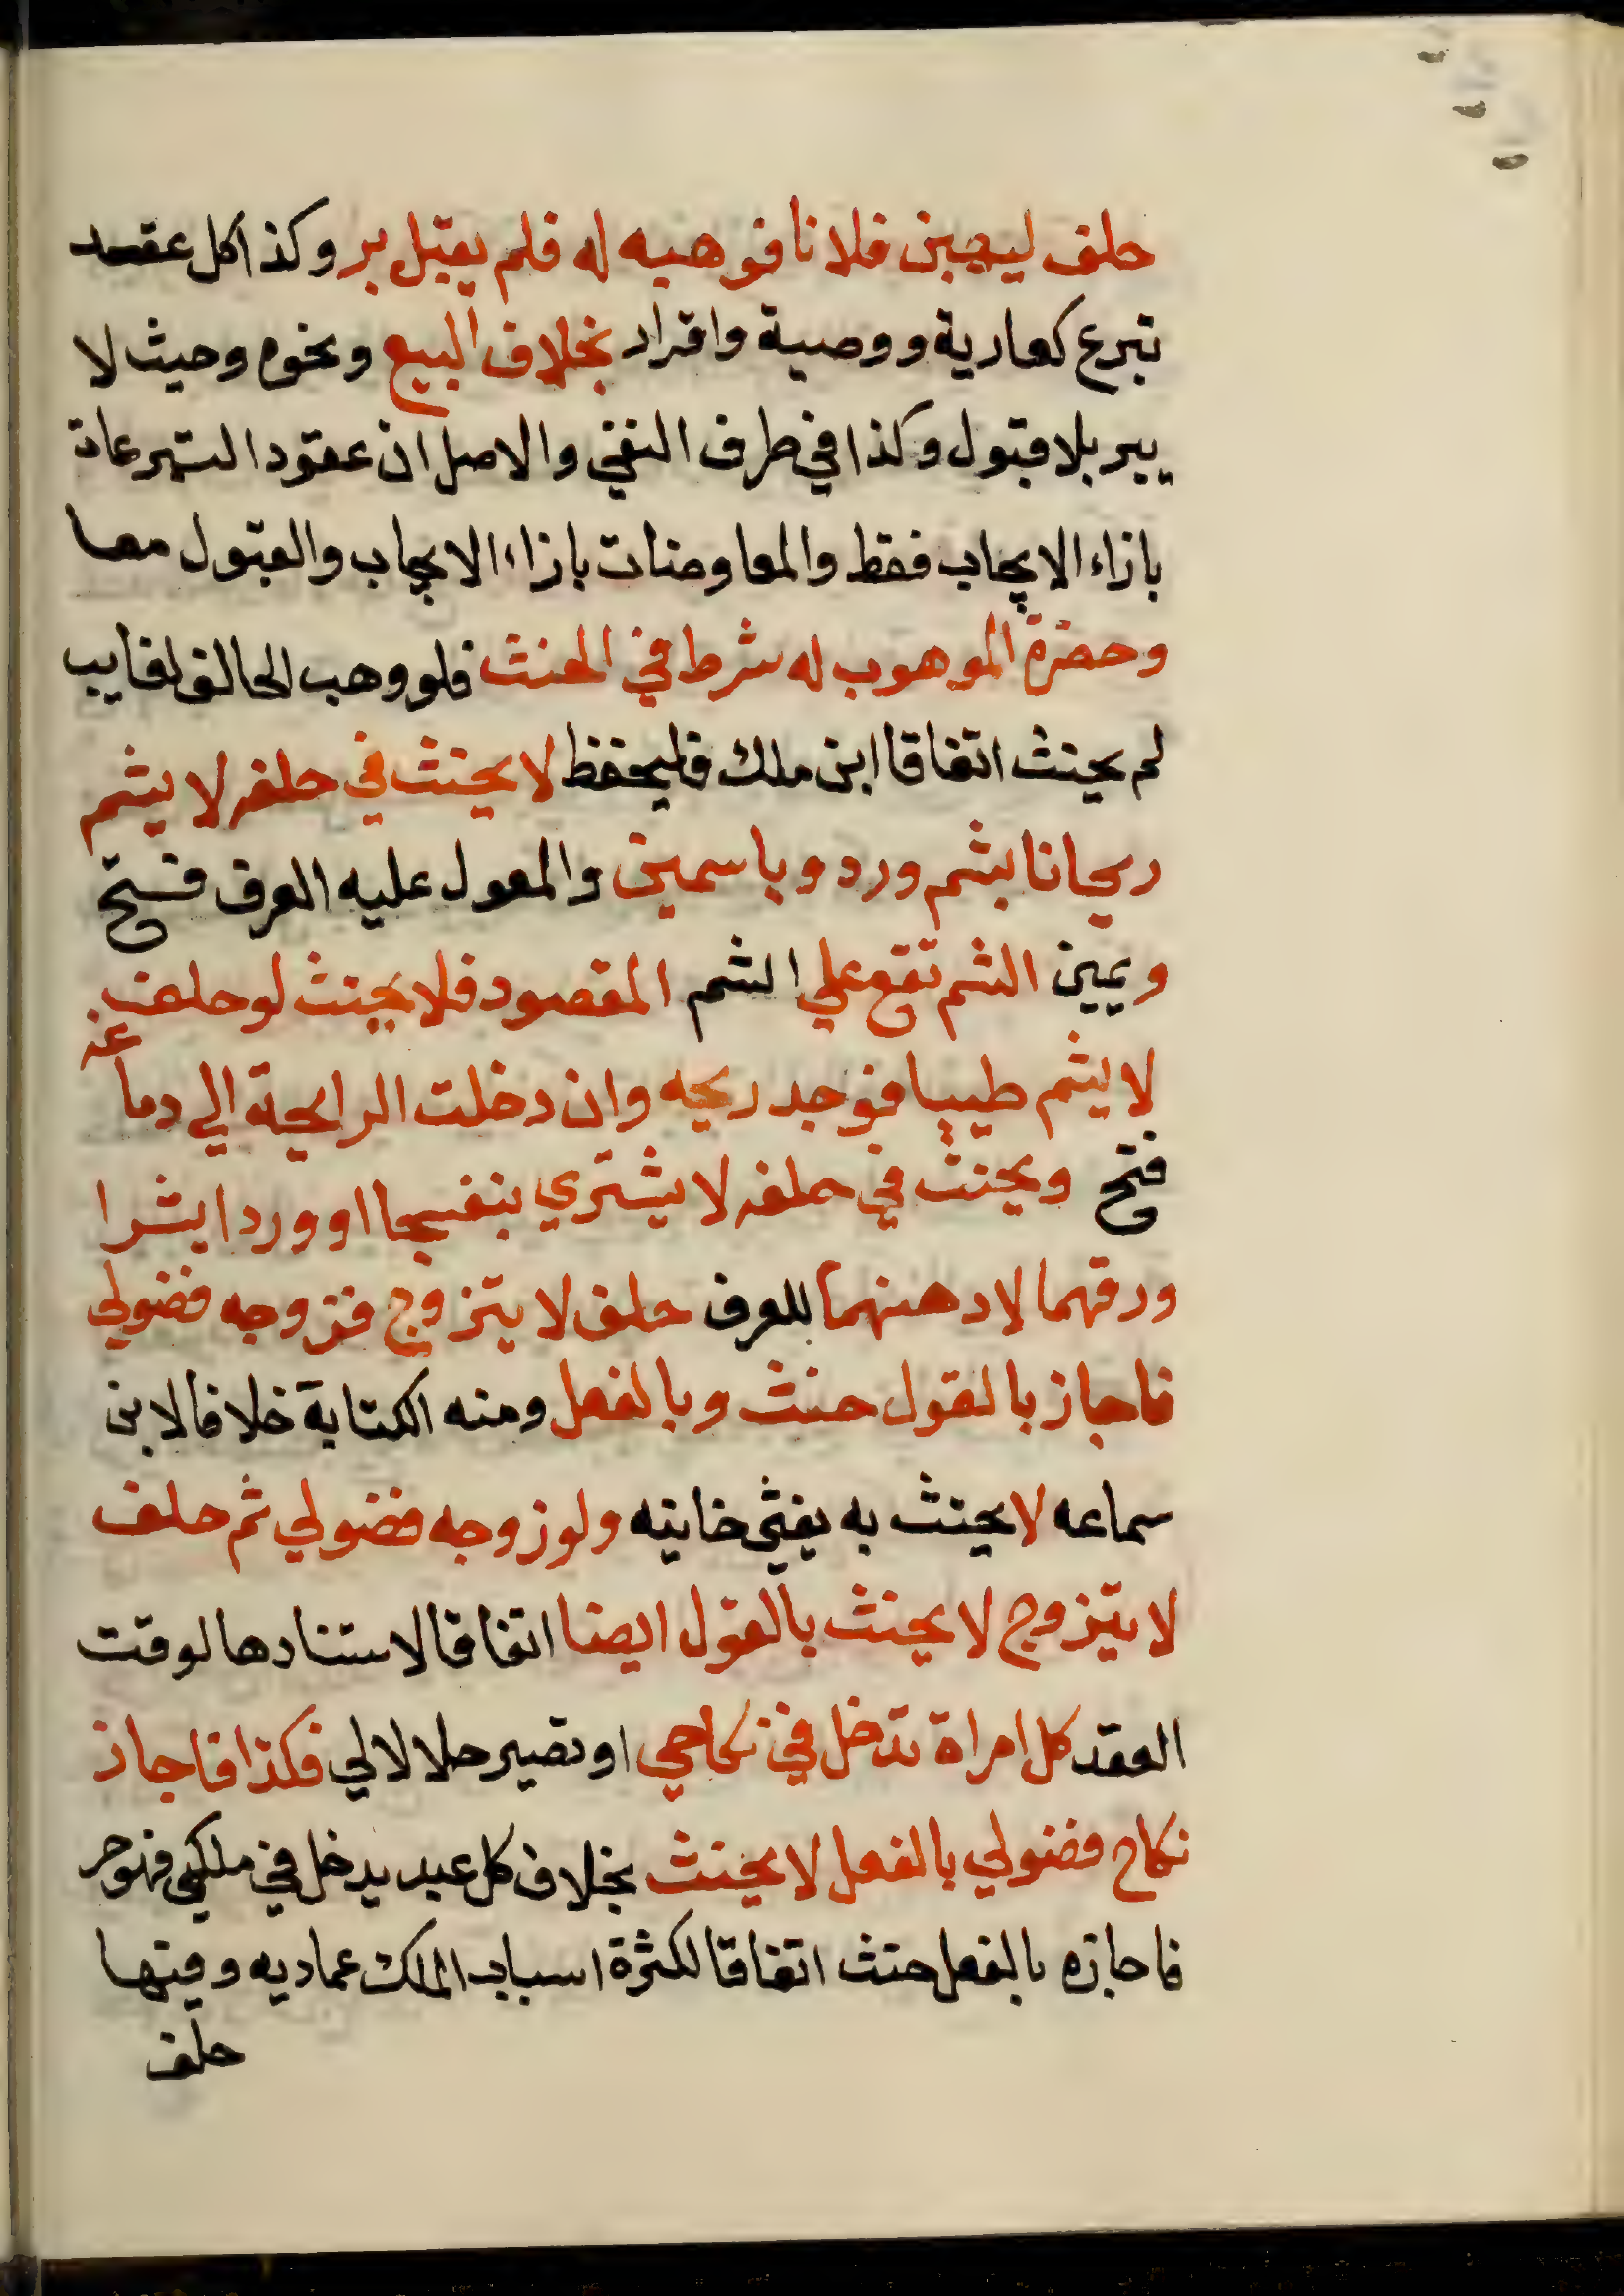 حلف ليهبن فلانا فوهبه له فلم يقبل بر وكذا كل عقد
تبرع كعارية ووصية واقرار بخلاف البيع ونحوه وحيث لا
يبر بلا قبول وكذا في طرف النفي والاصل ان عقود التبرعات
بازاء الايجاب فقط والمعاوضات بازاء الايجاب والقبول معا
وحضرة الموهوب له شرط في الحنث فلو وهب الحالف لغايب
لم يحنث اتفاقا ابن ملك فليحفظ لا يحنث في حلفه لا يشم
ريحانا بشم ورد وياسمين والمعول عليه العرف فتح
ويمين الشم تقع علي الشم المقصود فلا يحنث لو حلف
لا يشم طيبا فوجد ريحه وان دخلت الرايحة الي دماغه
فتح ويحنث في حلفه لا يشتري بنفسجا او وردا بشرا
ورقهما لا دهنهما للعرف حلف لا يتزوج فزوجه فضولي
فاجاز بالقول حنث وبالفعل ومنه الكتابة خلافا لابن
سماعه لا يحنث به يفتي خانيه ولو زوجه فضولي ثم حلف
لا يتزوج لا يحنث بالقول ايضا اتفاقا لاستنادها لوقت
العقد كل امراة تدخل في نكاحي او تصير حلالا لي فكذا فاجاز
نكاح فضولي بالفعل لا يحنث بخلاف كل عبد يدخل في ملكي فهو حر
فاجازه بالفعل حنث اتفاقا لكثرة اسباب الملك عماديه وفيها
حلف